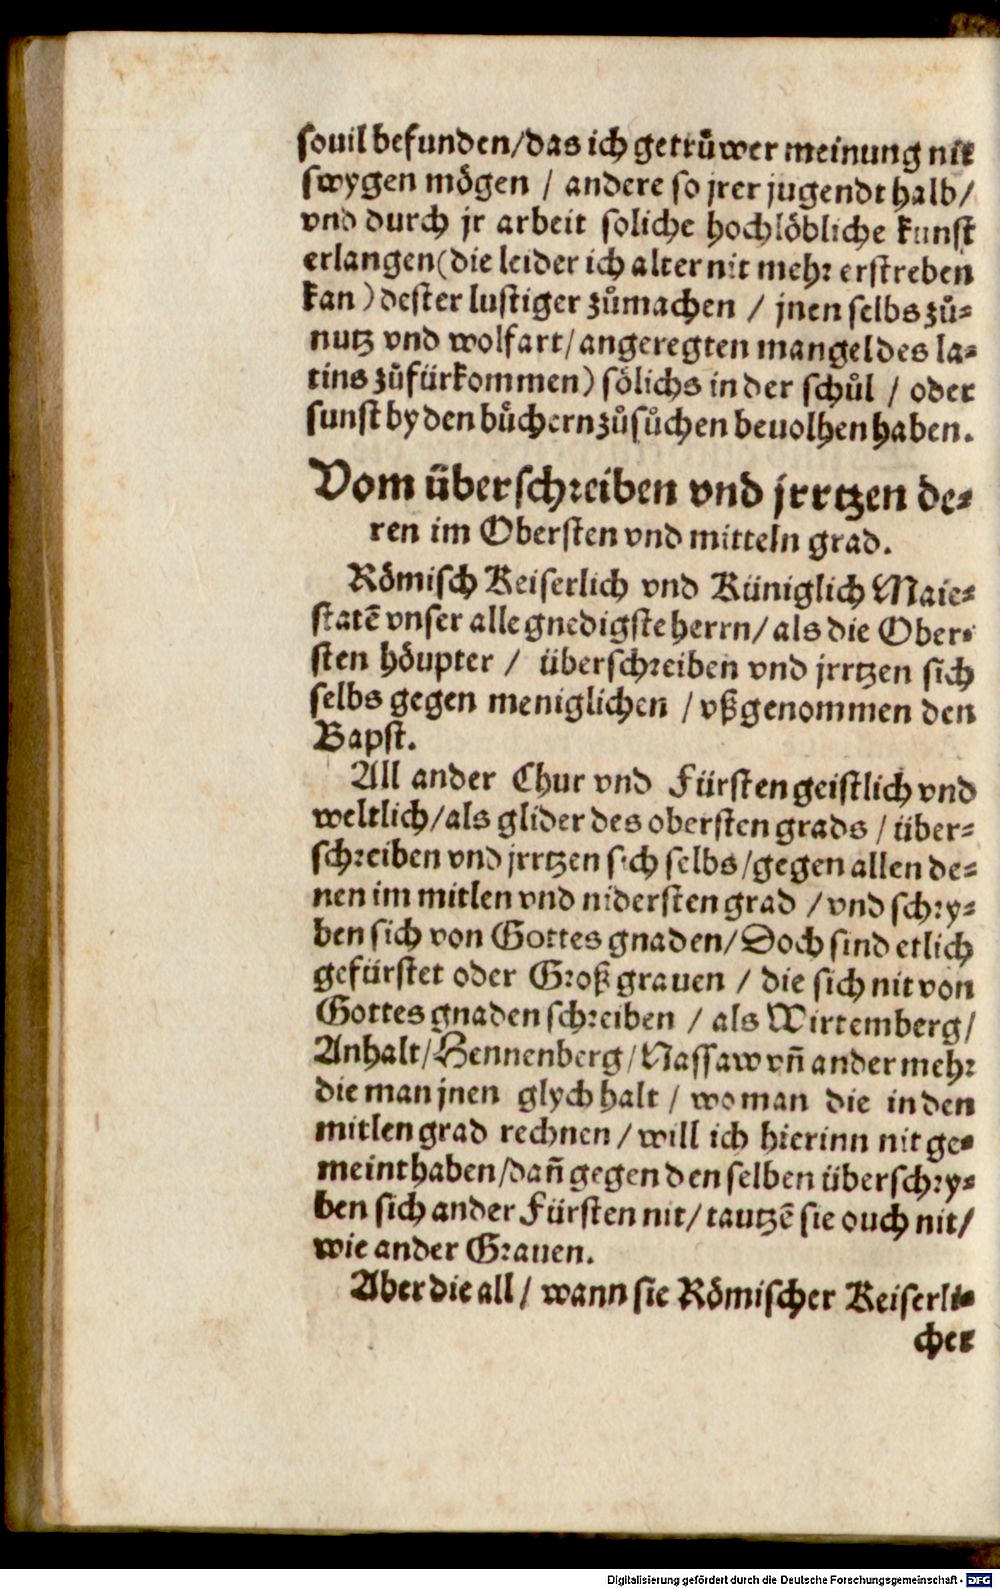 souil befunden/das ich getruͤwer meinung nit
swygen moͤgen / andere so jrer jugendt halb/
vnd durch jr arbeit soliche hochloͤbliche kunst
erlangen(die leider ich alter nit mehr erstreben
kan) dester lustiger zuͦmachen / jnen selbs zuͦ⸗
nutz vnd wolfart/angeregten mangel des la⸗
tins zuͦfürkommen) soͤlichs in der schuͦl / oder
sunst by den buͤchern zuͦsuͦchen beuolhen haben.
Vom überschreiben vnd jrrtzen de⸗
ren im Obersten vnd mitteln grad.
Roͤmisch Keiserlich vnd Küniglich Maie⸗
statē vnser allegnedigste herrn/als die Ober⸗
sten hoͤupter / überschreiben vnd jrrtzen sich
selbs gegen meniglichen / vßgenommen den
Bapst.
All ander Chur vnd Fürsten geistlich vnd
weltlich/als glider des obersten grads / über⸗
schreiben vnd jrrtzen sich selbs/gegen allen de⸗
nen im mitlen vnd nidersten grad / vnd schry⸗
ben sich von Gottes gnaden/Doch sind etlich
gefürstet oder Großgrauen / die sich nit von
Gottes gnaden schreiben / als Wirtemberg/
Anhalt/Hennenberg/Nassaw vñ ander mehr
die man jnen glych halt / wo man die in den
mitlen grad rechnen / will ich hierinn nit ge⸗
meint haben/dañ gegen den selben überschry⸗
ben sich ander Fürsten nit/tautzē sie ouch nit/
wie ander Grauen.
Aber die all / wann sie Roͤmischer Keiserli⸗
cher
Digitalisierung gefördert durch die Deutsche Forschungsgemeinschaft - DFG